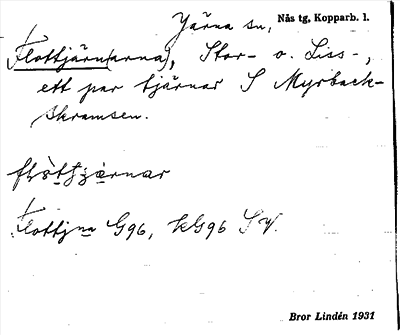 Järna sn, Näs tg, Kopparb. l.
Flottjärn(arna), Stor- o. Liss-,
ett par tjärnar S Myrback-
skramsen.
Flottjna G96, kG96 SV.
Bror Lindén 1931